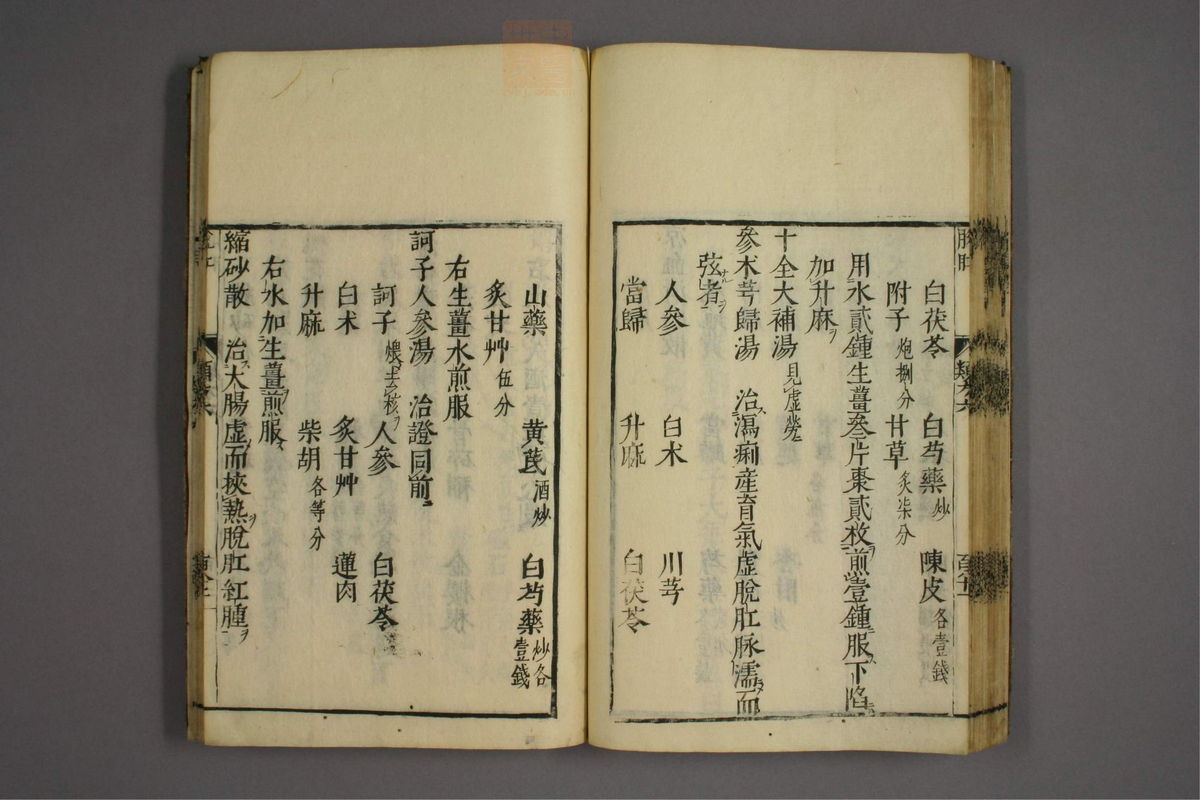 白茯苓 白芍藥炒 陳皮各壹錢
附子炮捌分 甘草炙柒分
用水貳鍾生薑叁片棗貳枚煎壹鍾服下陷
加升麻ヲ
十全大補湯見虛勞
參朮芎歸湯 治瀉痢産育氣虛脫肛脉濡而
弦者ヲ
人參 白朮 川芎
當歸 升麻 白茯苓
山藥 黄芪酒炒 白芍藥炒各壹錢
炙甘艸伍分
右生薑水煎服
訶子人參湯 治證同前
訶子煨去核 人參 白茯苓
白朮 炙甘艸 蓮肉
升麻 柴胡各等分
右水加生薑煎服
縮砂散 治大腸虛而挾熱脫肛紅腫ヲ